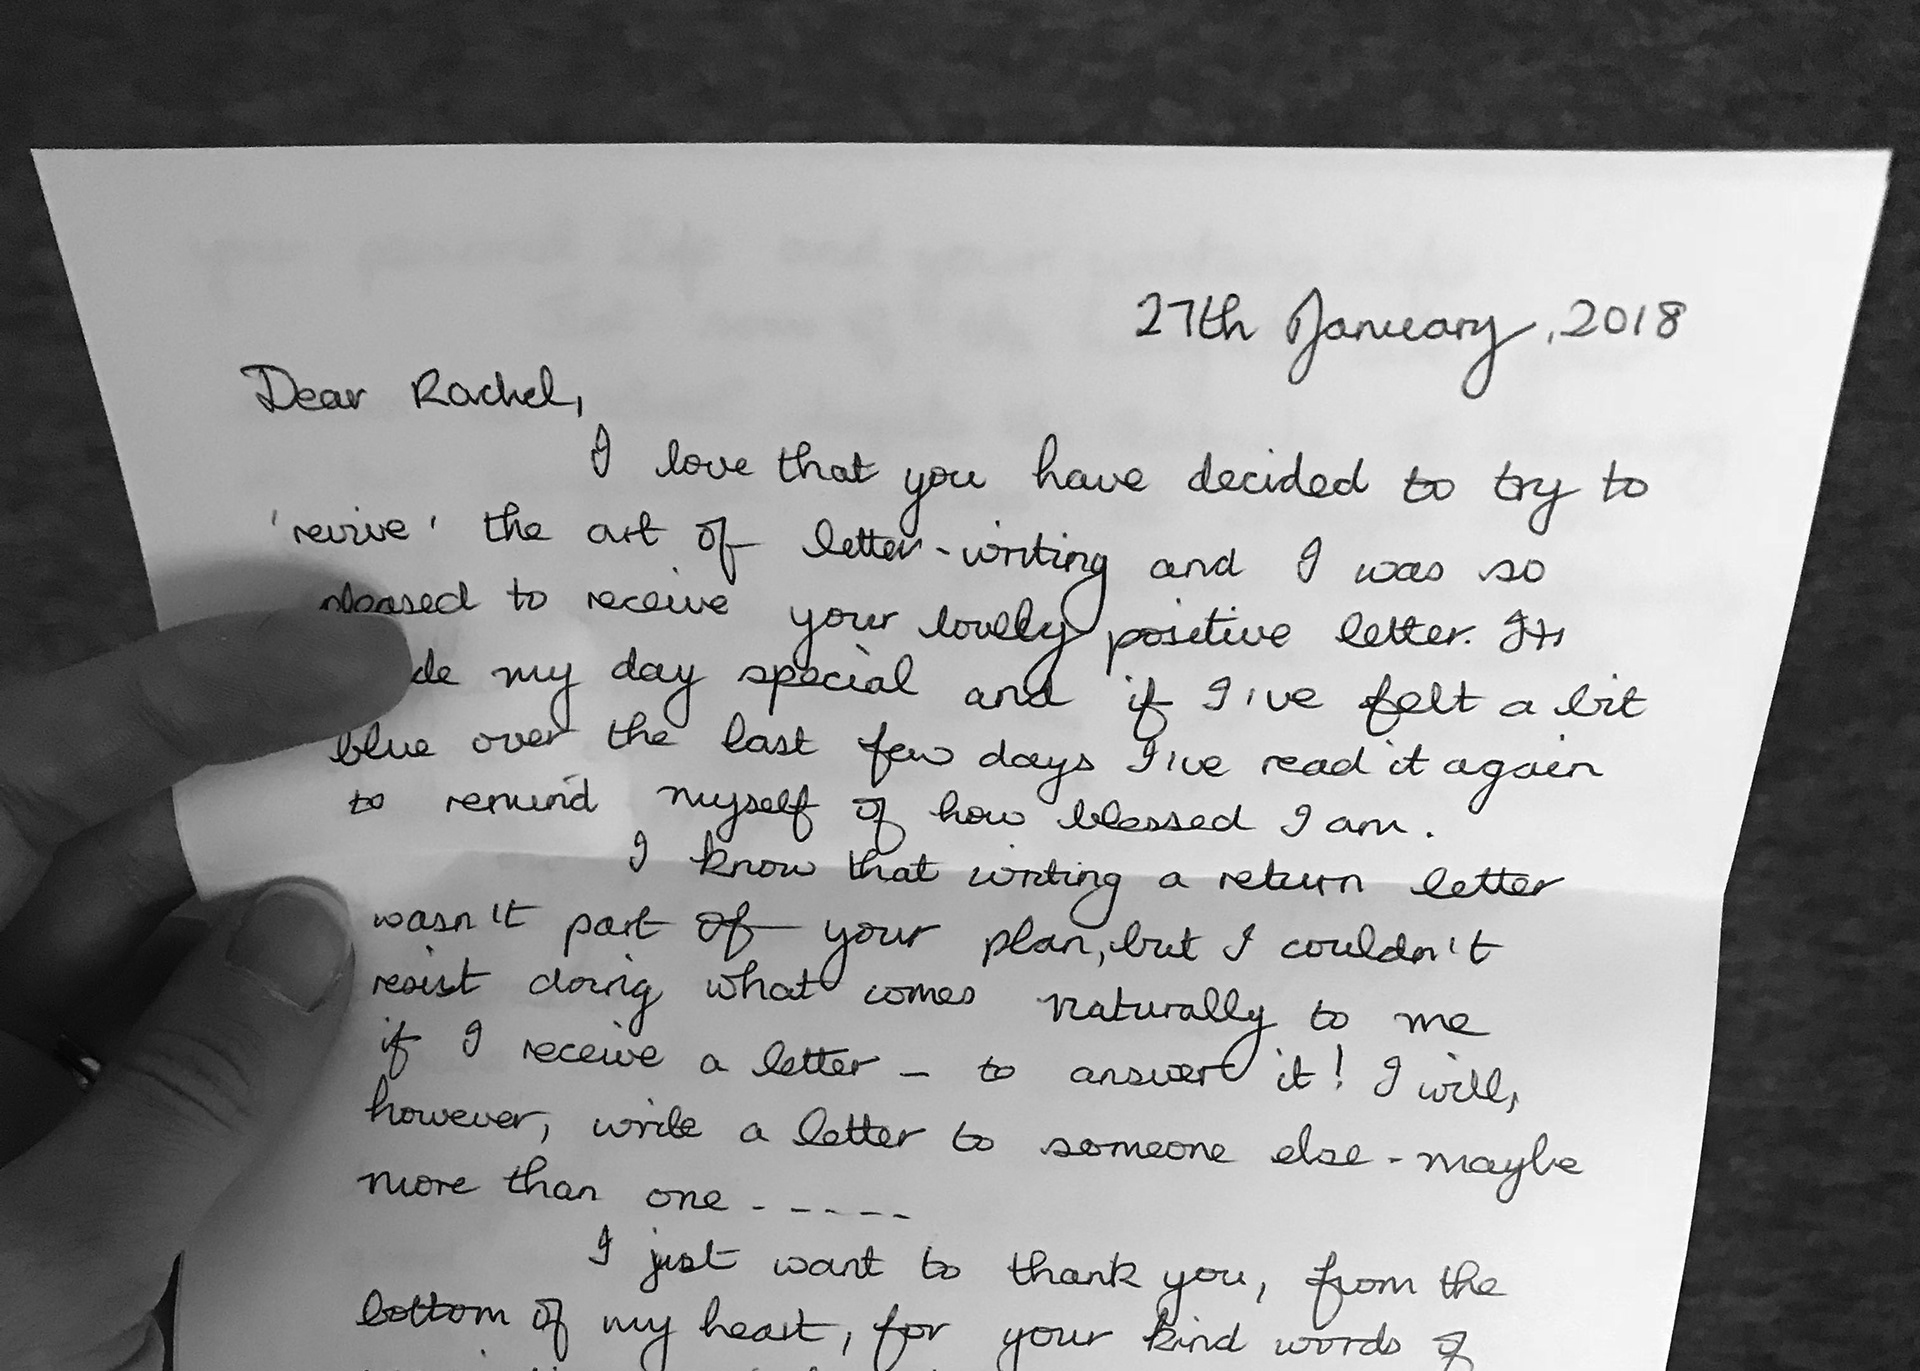 27th January, 2018
Dear Rachel,
I love that you have decided to try to
'revive' the art of letter-writing and I was so
pleased to receive your lovely positive letter. It
de my day special and if I've felt a bit
blue over the last few days I've read it again
to remind myself of how blessed I am.
I know that writing a return letter
wasn't part of your plan, but I couldn't
resist doing what comes naturally to me
if I receive a letter – to answer it! I will,
however, write a letter to someone else - maybe
more than one - - - - - -
I just want to thank you, from the
bottom of my heart, for your kind words of